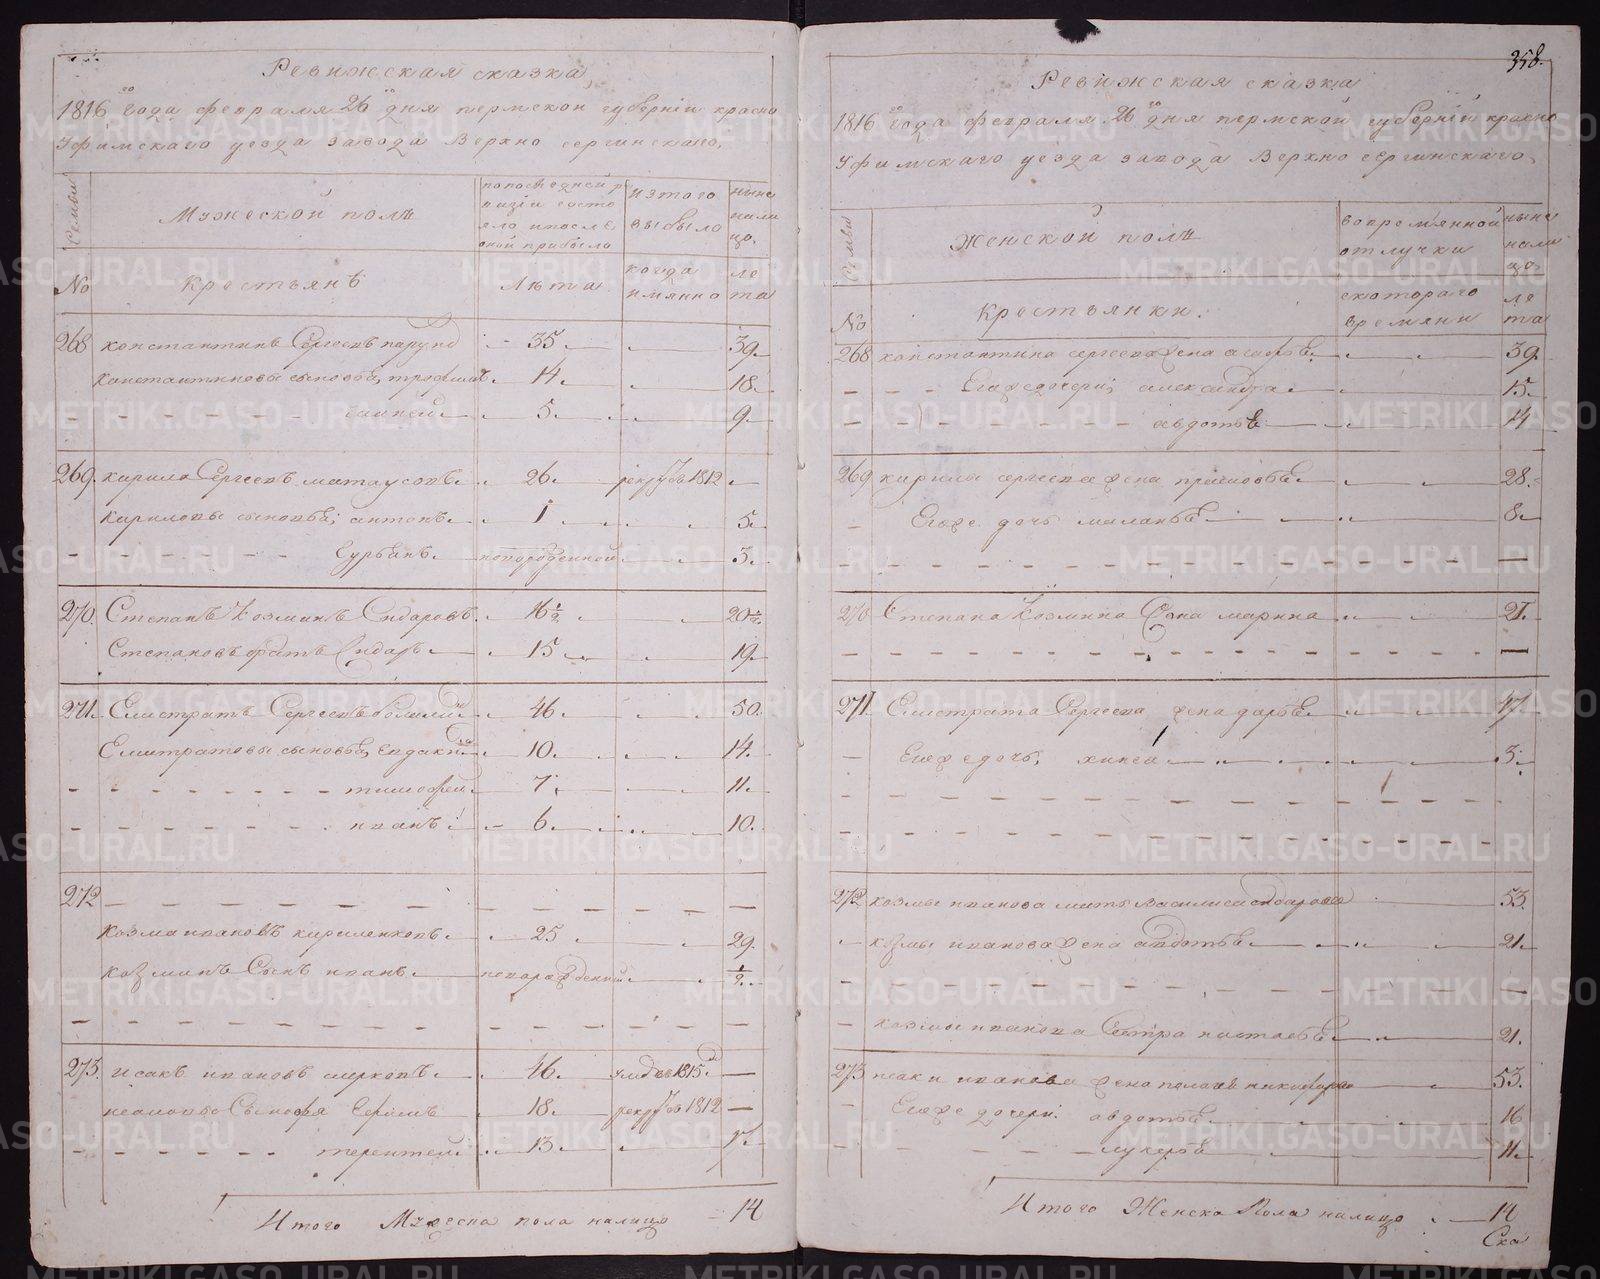 Ревижская сказка
1816 го года февраля 26 го дня пермской губернiи красно
Уфимскаго уезда завода Верхно сергинскаго,
Семьи
Мужеской полъ
по последней р
евизiи состо
яло и после
оной прибыло
изтого
выбыло
ныне
нали
цо.
No
Крестьянъ
Лѣта
когда
имянно
ле
та
268 константинъ Сергеевъ 35 39
константиновы сыновья, трофимъ 14 18
5 9
269. кирило Сергеевъ матаусовъ 26 рекрутъ 1812
кириловы сыновья; антонъ 1 5
Гурьянъ новорожденной 3
270. Степанъ Козминъ Сидоровъ 16 1/2 20 1/2
Степановъ братъ Сидоръ 15 19
271. Елистратъ Сергеевъ 46 50
Елистратовы сыновья, евдокимъ 10 14
тимофей 7 11
иванъ 6 10
272
козма ивановъ кириленковъ 25 29
козминъ Сынъ иванъ новорожденный 1/2
273. исакъ ивановъ 46 1815
Сыновья Ефимъ 18 рекрутъ 1812
терентей 13 17
Итого Мужеска пола налицо 14
358.
Ревижская сказка
1816 го года февраля 26 го дня пермской губернiи красно
Уфимскаго уезда завода Верхно сергинскаго,
Семьи
Женской полъ
во времянной
отлучки
ныне
нали
цо
No
Крестьянки.
скотораго
времяни
ле
та
268 константина сергеева жена 39
Егожедочери; александра 15
авдотья 14
269 кирилы сергеева жена прасковья 28
Егоже дочь маланья 8
270 Степана Козмина Жена марина 21
271 Елистрата Сергеева жена дарья 47
Егоже дочь, 3
272 козмы иванова мать василиса сидорова 53
козмы иванова жена авдотья 21
козмы иванова Сестра настасья 21
273 исака иванова жена пелагея никифорова 53
Егоже дочери: авдотья 16
лукерья 11
Итого Женска Пола налицо 14
Ска